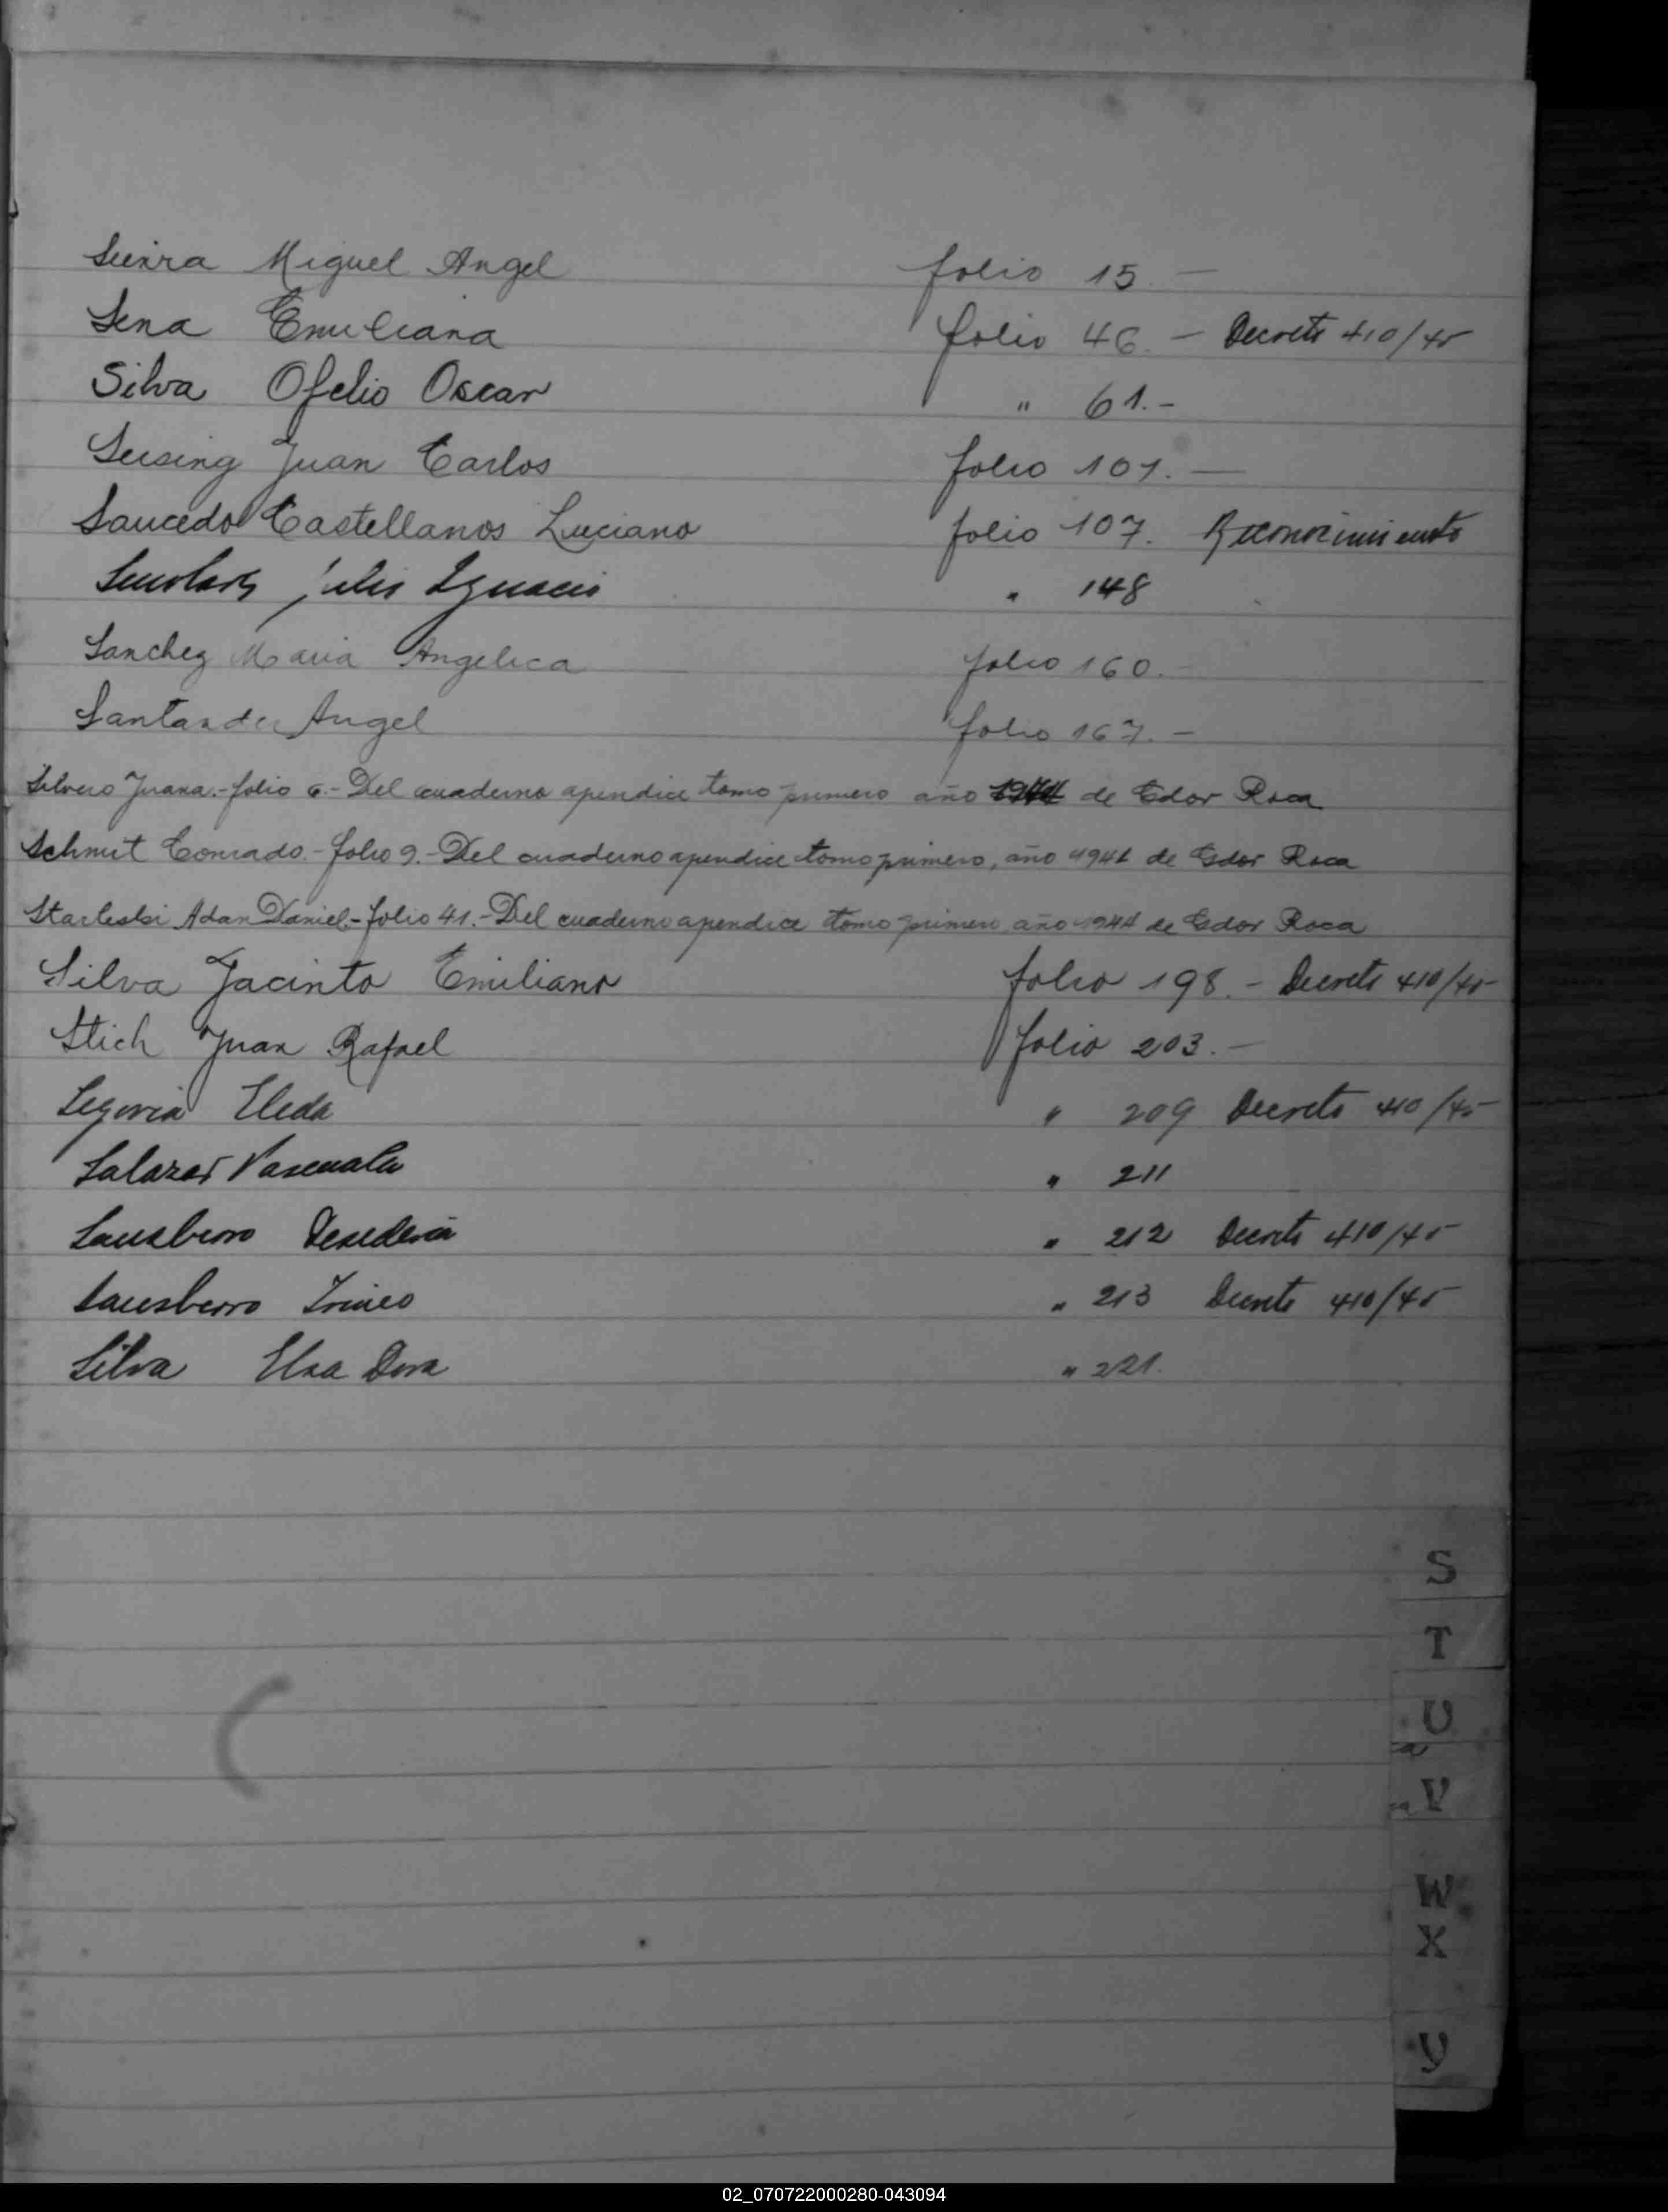 Sierra Miguel Angel folio 15.—
Sena Emiliana folio 46.— Decreto 410/45
Silva Ofelio Oscar " 61.-
Seising Juan Carlos folio 101.—
Saucedo Castellanos Luciano folio 107. Reconocimiento
Julio Ignacio " 148
Sanchez Maria Angelica folio 160.-
Santander Angel folio 167.-
Silvero Juana.-folio 6.-Del cuaderno apendice tomo primero año 1944 de Edor Roca
Schmit Conrado.-folio 9.-Del cuaderno apendice tomo primero, año 1944 de Edor Roca
Starleski Adan Daniel.-folio 41.-Del cuaderno apendice tomo primero año 1944 de Edor Roca
Silva Jacinto Emiliano folio 198.- Decreto 410/45
Stich Juan Rafael folio 203.-
Segovia Eleda " 209 Decreto 410/45
Salazar Pascuala " 211
Desideria " 212 Decreto 410/45
Irineo " 213 Decreto 410/45
Silva Elsa Dora " 221.
S
T
U
V
W
X
Y
02_070722000280-043094